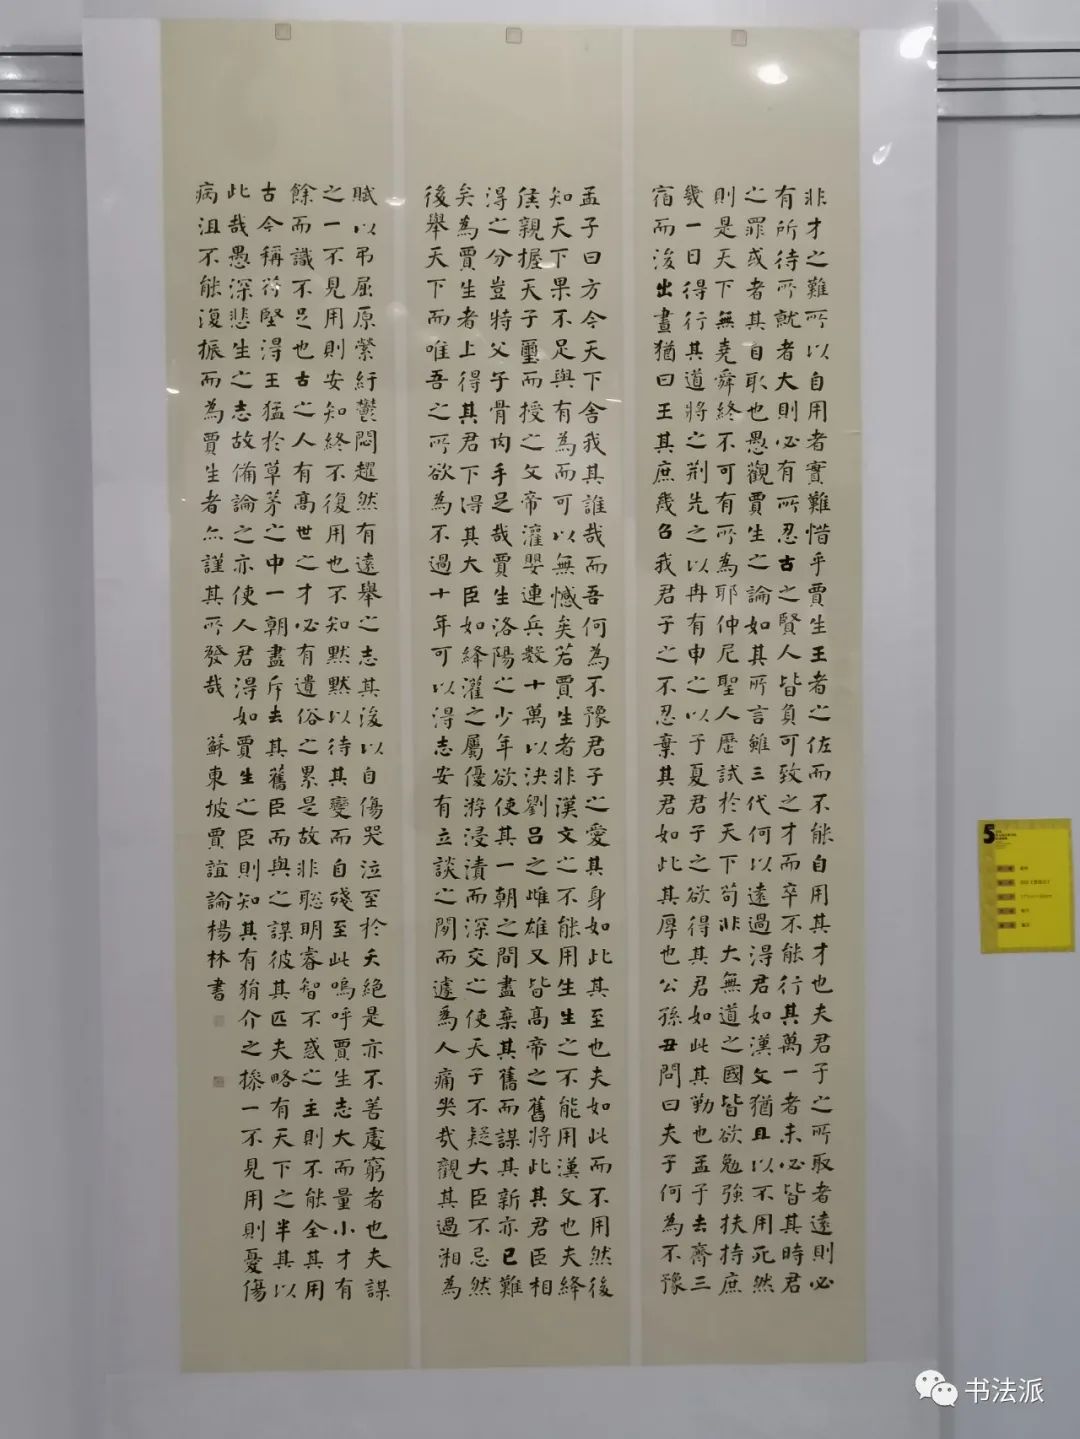 非才之難所以自用者實難惜乎賈生王者之佐而不能自用其才也夫君子之所取者遠則必
有所待所就者大則必有所忍古之賢人皆負可致之才而卒不能行其萬一者未必皆其時君
之罪或者其自取也愚觀賈生之論如其所言雖三代何以遠過得君如漢文猶且以不用死然
則是天下無堯舜終不可有所為耶仲尼聖人歷試於天下苟非大無道之國皆欲勉強扶持庶
幾一日得行其道將之荊先之以冉有申之以子夏君子之欲得其君如此其勤也孟子去齊三
宿而後出晝猶曰王其庶幾召我君子之不忍棄其君如此其厚也公孫丑問曰夫子何為不豫
孟子曰方今天下舍我其誰哉而吾何為不豫君子之愛其身如此其至也夫如此而不用然後
知天下果不足與有為而可以無憾矣若賈生者非漢文之不能用生生之不能用漢文也夫絳
侯親握天子璽而授之文帝灌嬰連兵數十萬以決劉呂之雌雄又皆高帝之舊將此其君臣相
得之分豈特父子骨肉手足哉賈生洛陽之少年欲使其一朝之間盡棄其舊而謀其新亦已難
矣為賈生者上得其君下得其大臣如絳灌之屬優游浸漬而深交之使天子不疑大臣不忌然
後舉天下而唯吾之所欲為不過十年可以得志安有立談之間而遽為人痛哭哉觀其過湘為
賦以弔屈原縈紆鬱悶趯然有遠舉之志其後以自傷哭泣至於夭絕是亦不善處窮者也夫謀
之一不見用則安知終不復用也不知默默以待其變而自殘至此嗚呼賈生志大而量小才有
餘而識不足也古之人有高世之才必有遺俗之累是故非聰明睿智不惑之主則不能全其用
古今稱苻堅得王猛於草茅之中一朝盡斥去其舊臣而與之謀彼其匹夫略有天下之半其以
此哉愚深悲生之志故備論之亦使人君得如賈生之臣則知其有狷介之操一不見用則憂傷
病沮不能復振而為賈生者亦謹其所發哉 蘇東坡賈誼論楊林書
5
书法派